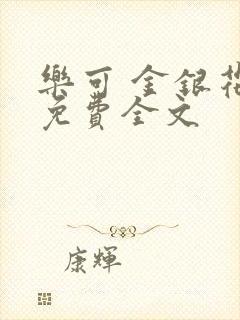 樂可 金銀花
免費全文
康輝